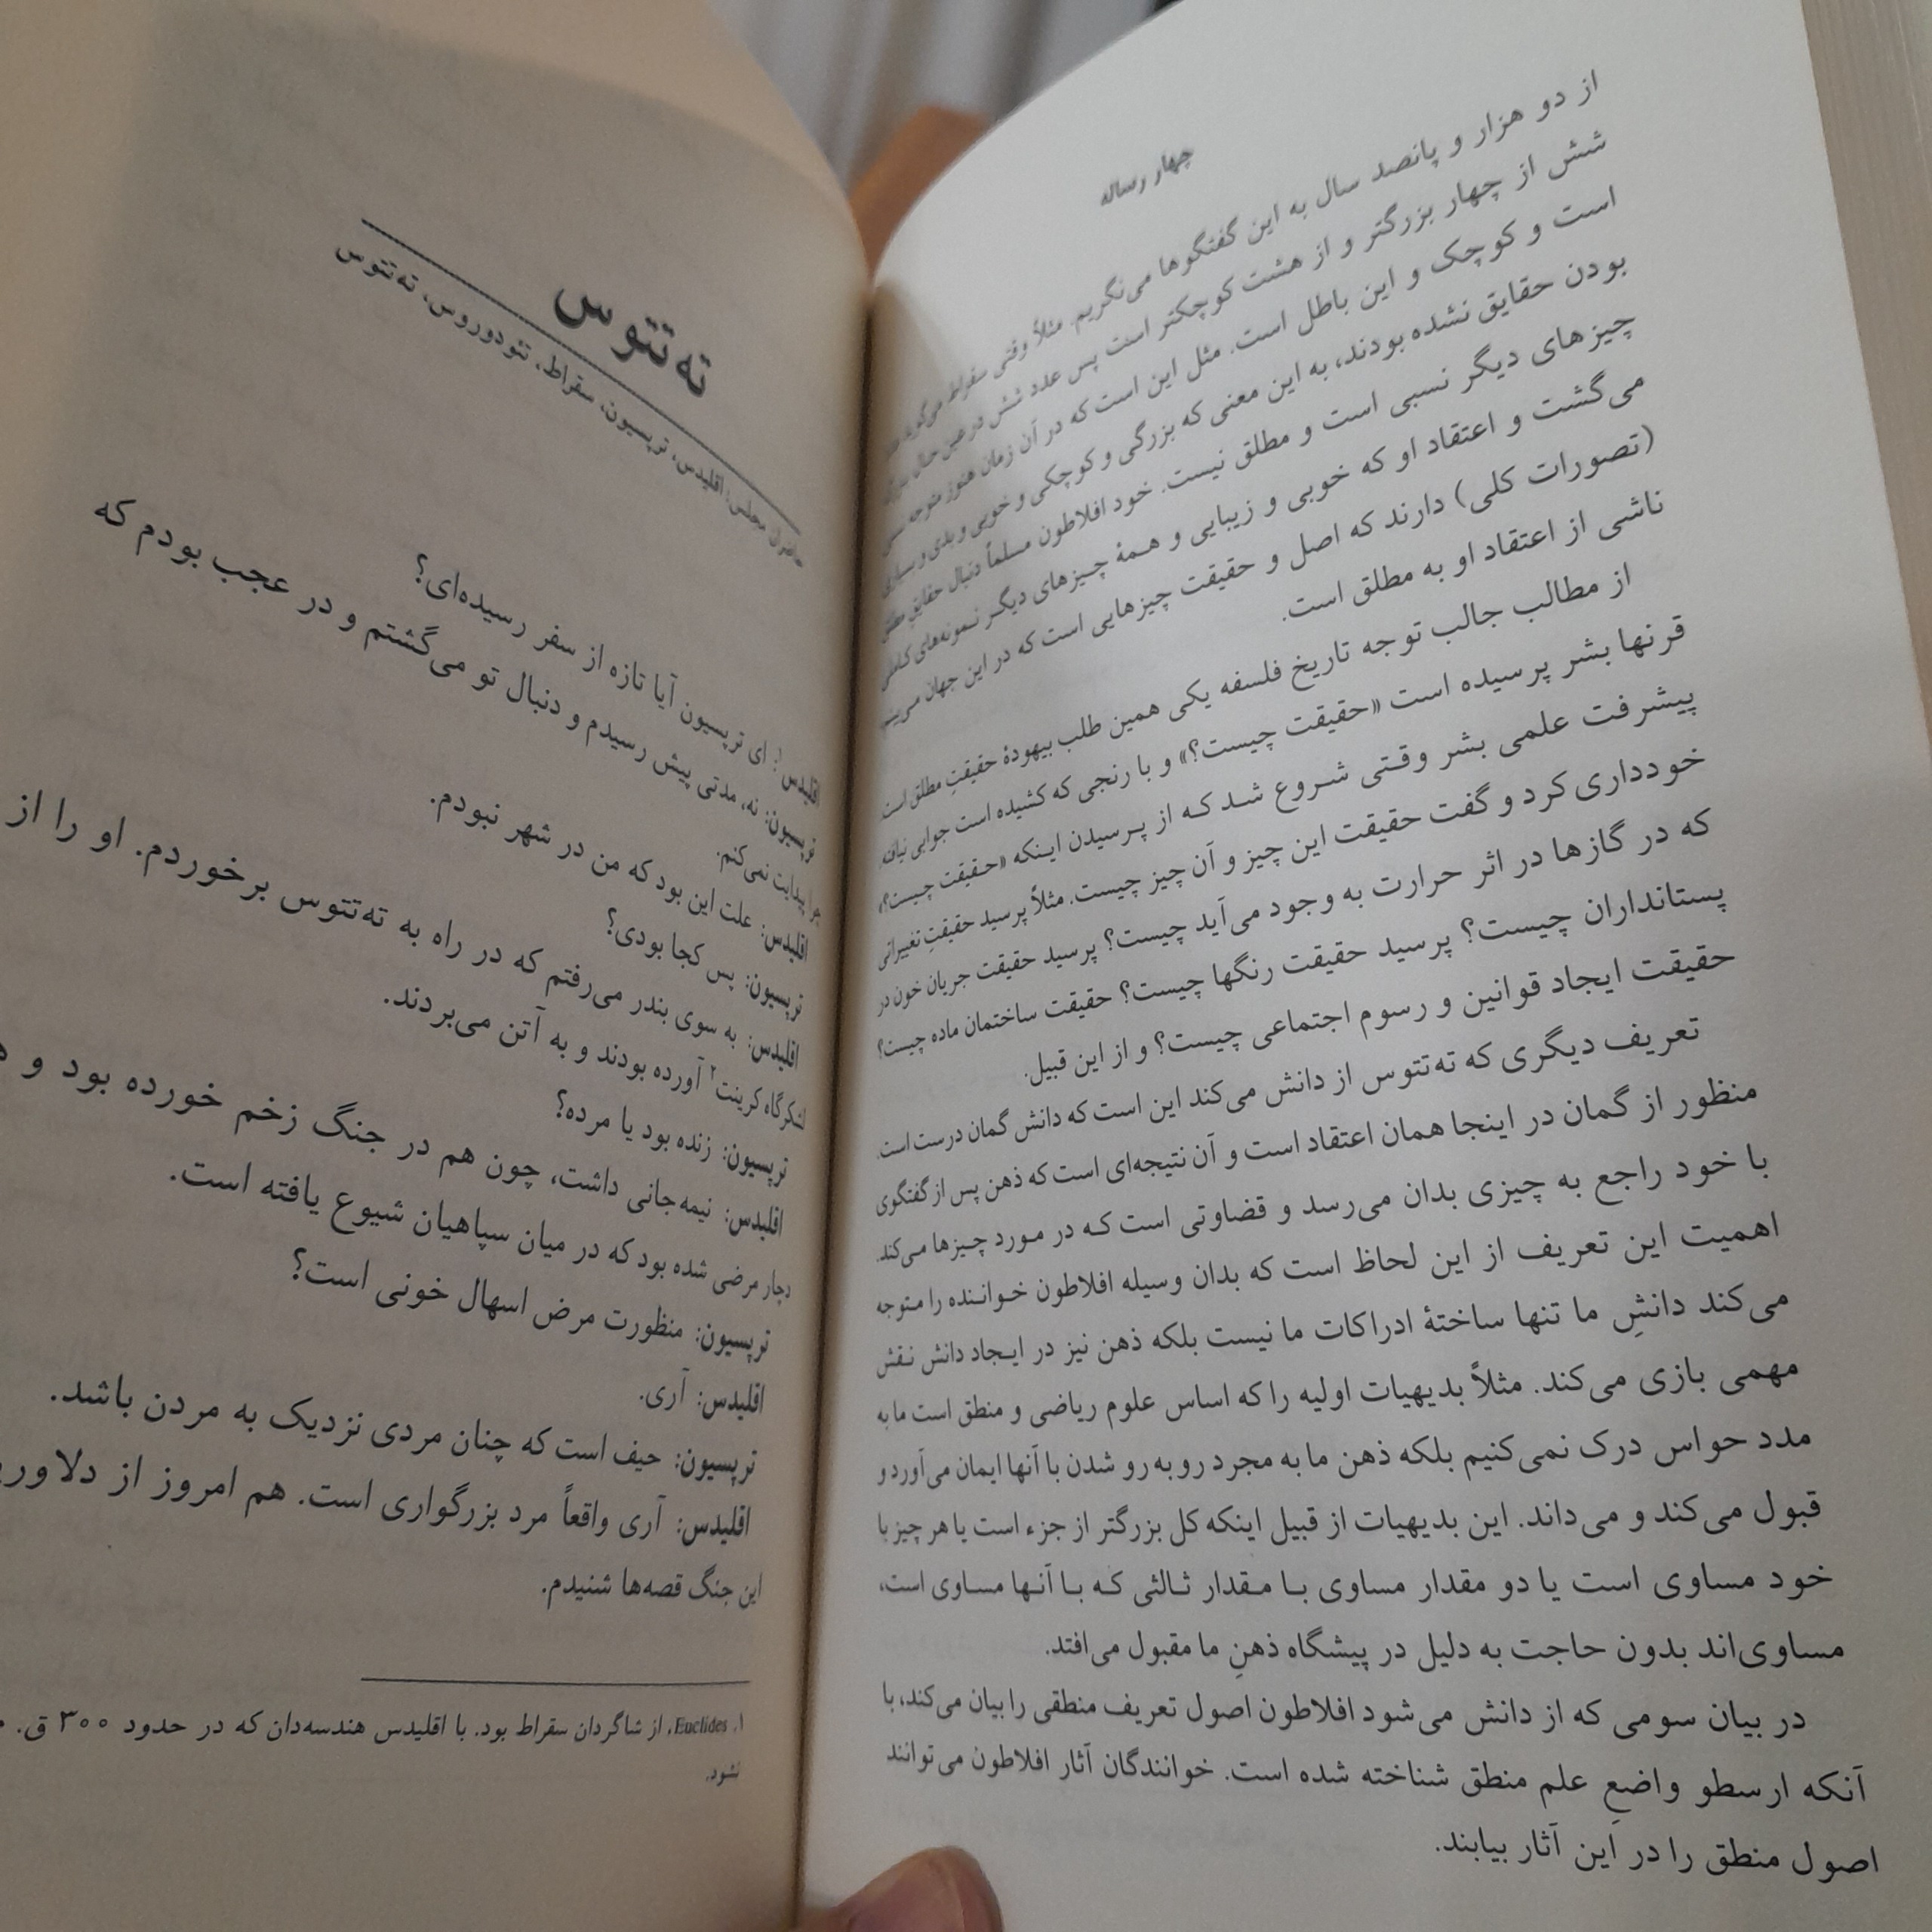 چهار رساله
از دو هزار و پانصد سال به این گفتگوها می‌نگریم. مثلاً وقتی سقراط می‌گوید
شش از چهار بزرگتر و از هشت کوچکتر است پس عدد شش در عین حال بزرگ
است و کوچک و این باطل است. مثل این است که در آن زمان هنوز متوجه
بودن حقایق نشده بودند، به این معنی که بزرگی و کوچکی و خوبی و بدی و بسیاری
چیزهای دیگر نسبی است و مطلق نیست. خود افلاطون مسلماً دنبال حقایق مطلق
می‌گشت و اعتقاد او که خوبی و زیبایی و همهٔ چیزهای دیگر نمونه‌های کاملی
(تصورات کلی) دارند که اصل و حقیقت چیزهایی است که در این جهان می‌بینیم
ناشی از اعتقاد او به مطلق است.
از مطالب جالب توجه تاریخ فلسفه یکی همین طلب بیهودهٔ حقیقتِ مطلق است.
قرنها بشر پرسیده است «حقیقت چیست؟» و با رنجی که کشیده است جوابی نیافته
پیشرفت علمی بشر وقتی شروع شد که از پرسیدن اینکه «حقیقت چیست؟»
خودداری کرد و گفت حقیقت این چیز و آن چیز چیست. مثلاً پرسید حقیقتِ تغییراتی
که در گازها در اثر حرارت به وجود می‌آید چیست؟ پرسید حقیقت جریان خون در
پستانداران چیست؟ پرسید حقیقت رنگها چیست؟ حقیقت ساختمان ماده چیست؟
حقیقت ایجاد قوانین و رسوم اجتماعی چیست؟ و از این قبیل.
تعریف دیگری که ته‌تتوس از دانش می‌کند این است که دانش گمان درست است.
منظور از گمان در اینجا همان اعتقاد است و آن نتیجه‌ای است که ذهن پس از گفتگوی
با خود راجع به چیزی بدان می‌رسد و قضاوتی است که در مورد چیزها می‌کند.
اهمیت این تعریف از این لحاظ است که بدان وسیله افلاطون خواننده را متوجه
می‌کند دانشِ ما تنها ساختهٔ ادراکات ما نیست بلکه ذهن نیز در ایجاد دانش نقش
مهمی بازی می‌کند. مثلاً بدیهیات اولیه را که اساس علوم ریاضی و منطق است ما به
مدد حواس درک نمی‌کنیم بلکه ذهن ما به مجرد روبه‌رو شدن با آنها ایمان می‌آورد و
قبول می‌کند و می‌داند. این بدیهیات از قبیل اینکه کل بزرگتر از جزء است یا هر چیز با
خود مساوی است یا دو مقدار مساوی با مقدار ثالثی که با آنها مساوی است،
مساوی‌اند بدون حاجت به دلیل در پیشگاه ذهنِ ما مقبول می‌افتد.
در بیان سومی که از دانش می‌شود افلاطون اصول تعریف منطقی را بیان می‌کند، با
آنکه ارسطو واضعِ علم منطق شناخته شده است. خوانندگان آثار افلاطون می‌توانند
اصول منطق را در این آثار بیابند.
ته‌تتوس
حاضران مجلس: اقلیدس، ترپسیون، سقراط، تئودوروس، ته‌تتوس
اقلیدس¹: ای ترپسیون آیا تازه از سفر رسیده‌ای؟
ترپسیون: نه، مدتی پیش رسیدم و دنبال تو می‌گشتم و در عجب بودم که
چرا پیدایت نمی‌کنم.
اقلیدس: علت این بود که من در شهر نبودم.
ترپسیون: پس کجا بودی؟
اقلیدس: به سوی بندر می‌رفتم که در راه به ته‌تتوس برخوردم. او را از
لشکرگاه کرینت² آورده بودند و به آتن می‌بردند.
ترپسیون: زنده بود یا مرده؟
اقلیدس: نیمه‌جانی داشت، چون هم در جنگ زخم خورده بود و
دچار مرضی شده بود که در میان سپاهیان شیوع یافته است.
ترپسیون: منظورت مرض اسهال خونی است؟
اقلیدس: آری.
ترپسیون: حیف است که چنان مردی نزدیک به مردن باشد.
اقلیدس: آری واقعاً مرد بزرگواری است. هم امروز از
این جنگ قصه‌ها شنیدم.
۱. Euclides، از شاگردان سقراط بود. با اقلیدس هندسه‌دان که در حدود ۳۰۰ ق.
نشود.